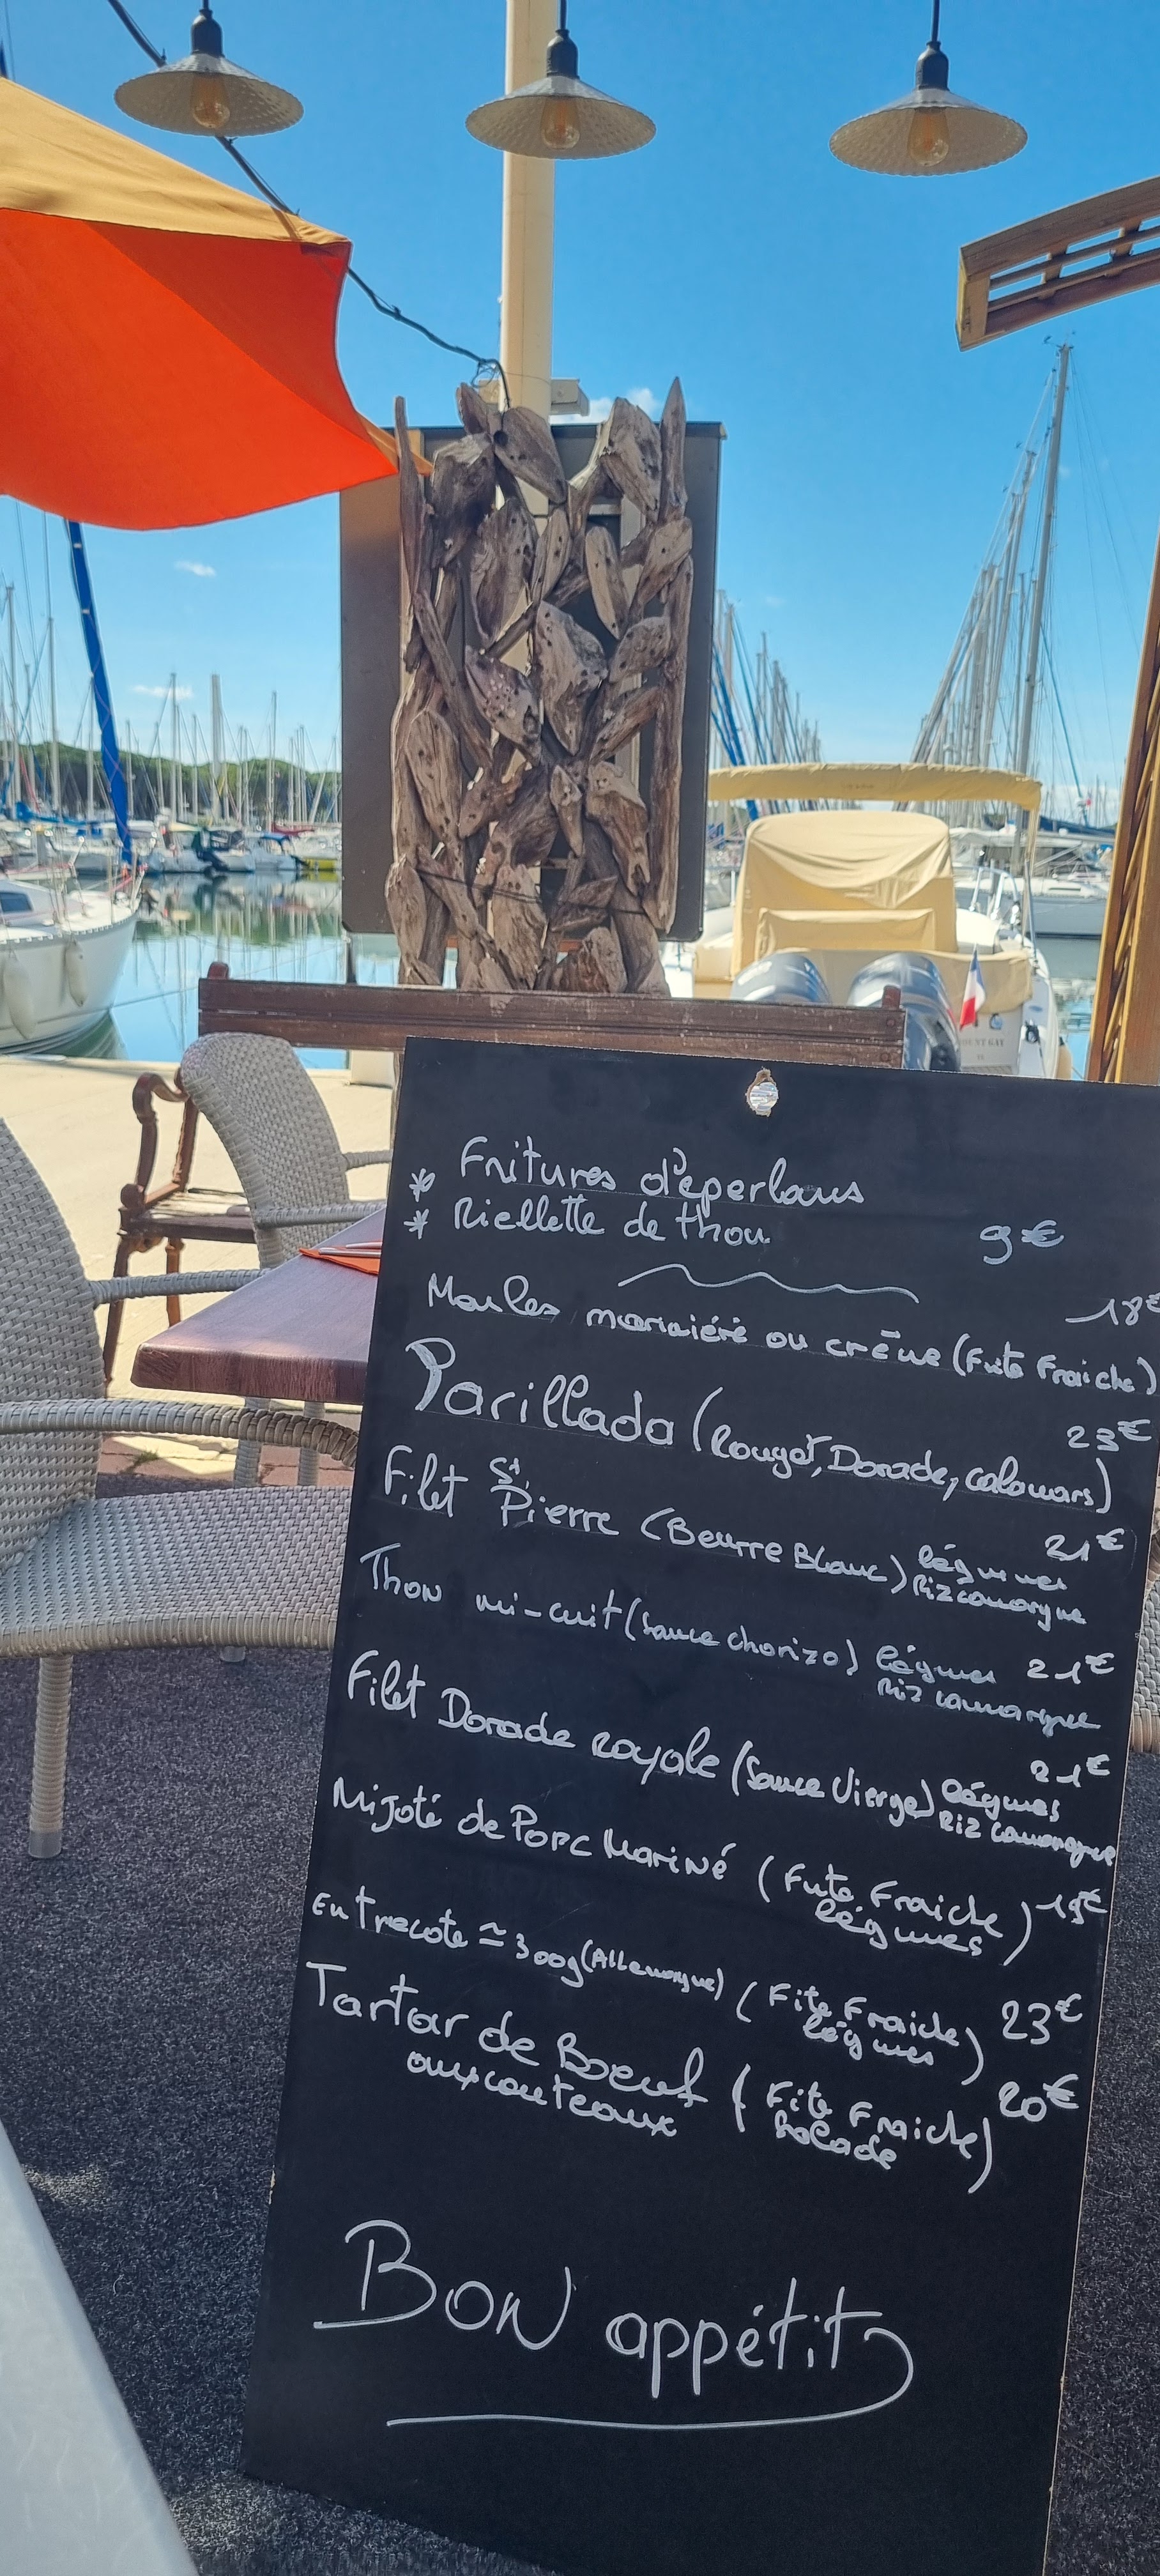 * Fritures d'eperlans
* Riellette de thon
9€
18€
Moules marinière ou crème (Frite Fraiche)
23€
Parillada (Rouget, Dorade, calamars)
21€
Filet St Pierre (Beurre Blanc) légumes
Riz camargue
Thon mi-cuit (sauce chorizo) légumes 21€
Riz camargue
21€
Filet Dorade royale (Sauce Vierge) légumes
Riz camargue
Mijoté de Porc Mariné (Frite Fraiche) 19€
légumes
Entrecote ≃ 300g (Allemagne) (Frite Fraiche) 23€
légumes
Tartar de Boeuf (Frite Fraiche) 20€
aux couteaux Salade
Bon appétit